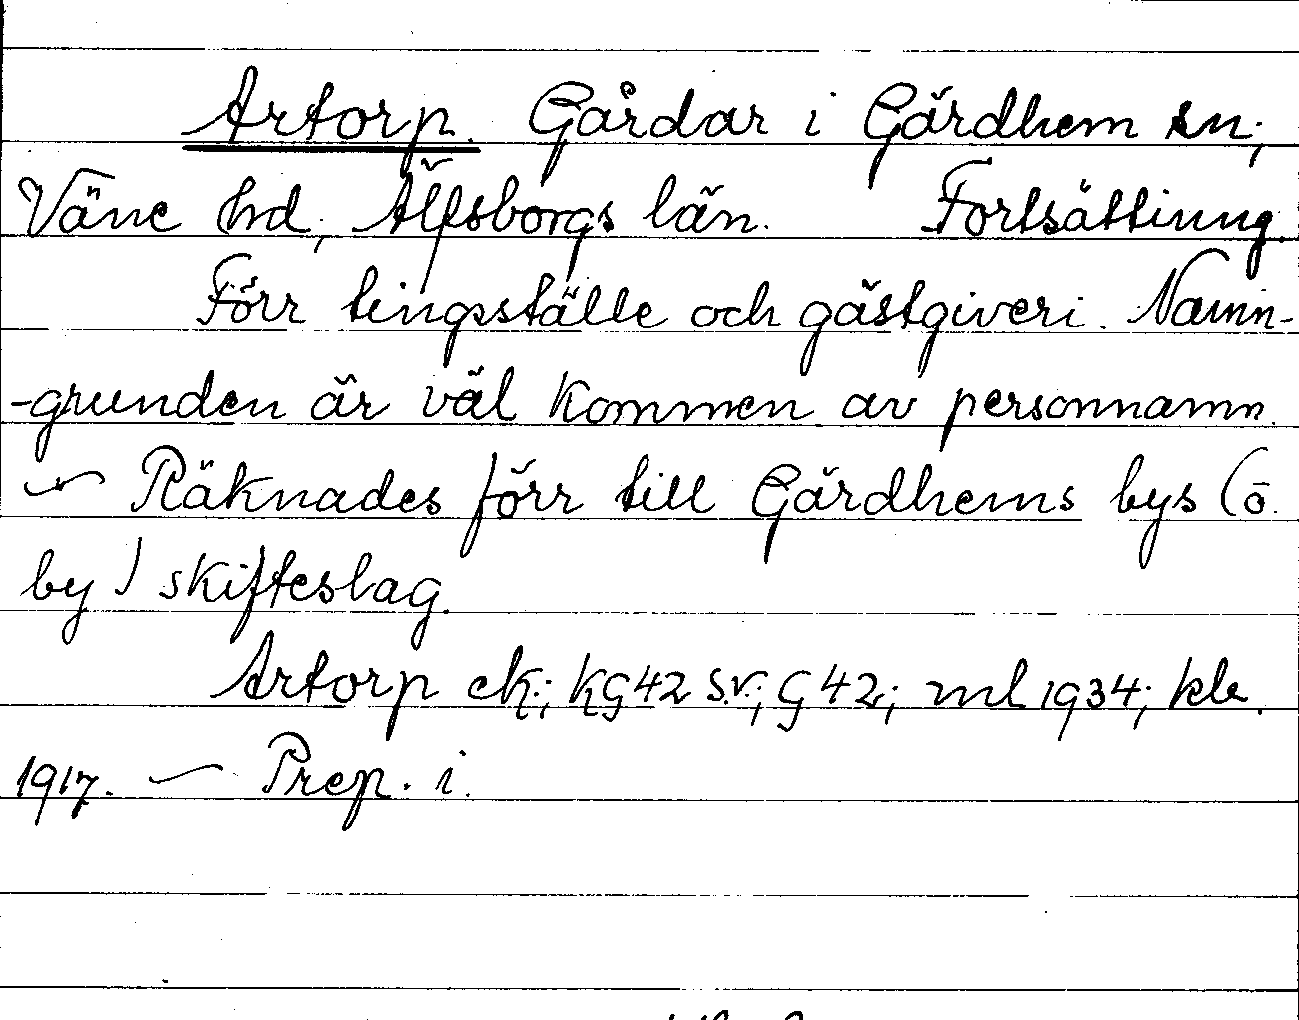 Artorp. Gårdar i Gärdhem sn;
Väne hd, Älfsborgs län. Fortsättning.
Förr tingsställe och gästgiveri. Namn-
-grunden är väl kommen av personnamn.
— Räknades förr till Gärdhems bys (ö.
by) skifteslag.
Artorp ek.; KG42 s.v.; G42; ml 1934; kle.
1917. — Prep. i.